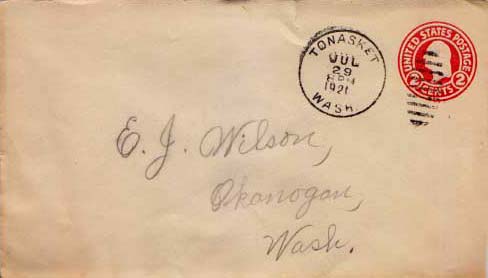 TONASKET
JUL
29
1921
WASH.
UNITED STATES POSTAGE
2 CENTS 2
E. J. Wilson,
Okanogan,
Wash.